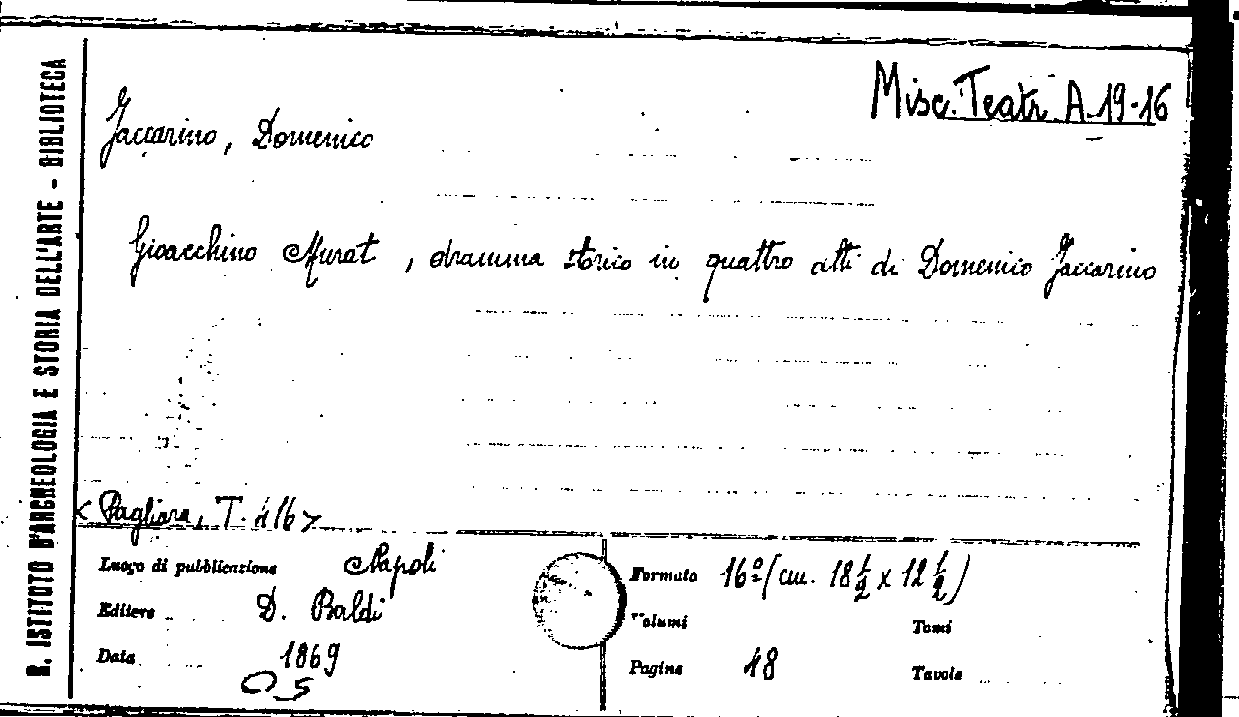 R. ISTITUTO D'ARCHEOLOGIA E STORIA DELL'ARTE - BIBLIOTECA
Misc. Teatr A. 19-16
Jaccarino, Domenico
Gioacchino Murat, dramma storico in quattro atti di Domenico Jaccarino
< Pagliara, T. 16 >
Luogo di pubblicazione Napoli
Editore D. Baldi
Data 1869
Formato 16º (cm. 18 1/2 x 12 1/2)
Volumi Tomi
Pagine 48 Tavole